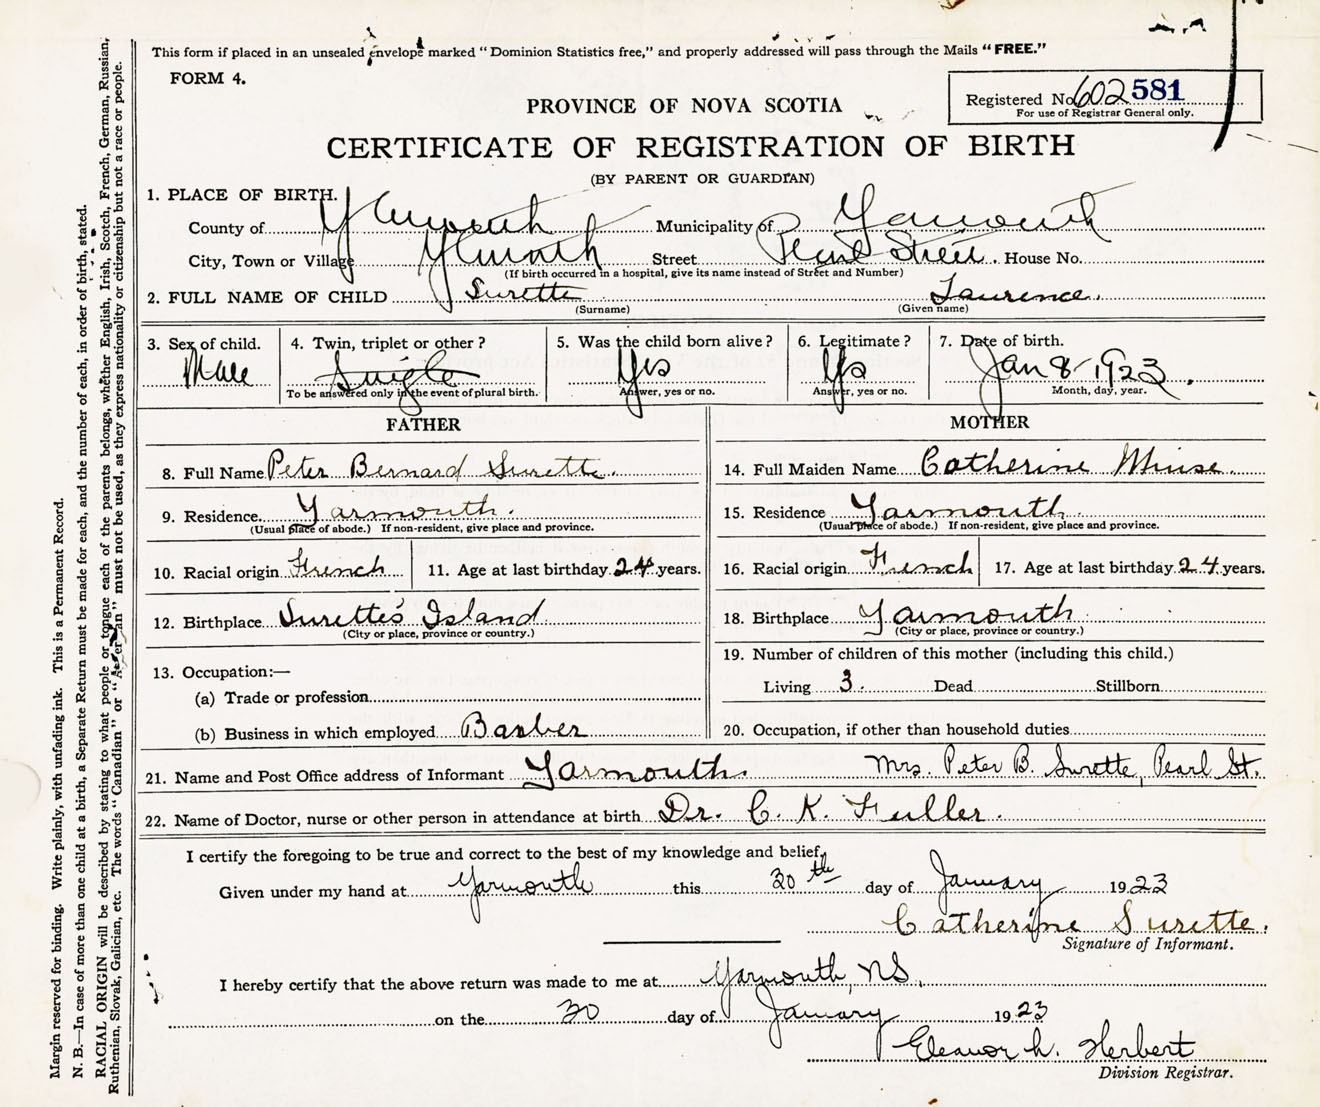 This form if placed in an unsealed envelope marked "Dominion Statistics free," and properly addressed will pass through the Mails "FREE."
FORM 4.
Registered No. 602581
For use of Registrar General only.
PROVINCE OF NOVA SCOTIA
CERTIFICATE OF REGISTRATION OF BIRTH
(BY PARENT OR GUARDIAN)
1. PLACE OF BIRTH.
County of Yarmouth Municipality of Yarmouth
City, Town or Village Yarmouth Street Pearl Street House No.
(If birth occurred in a hospital, give its name instead of Street and Number)
2. FULL NAME OF CHILD Surette Laurence.
(Surname) (Given name)
3. Sex of child. 4. Twin, triplet or other? 5. Was the child born alive? 6. Legitimate? 7. Date of birth.
Male Single Yes Yes Jan 8 - 1923.
To be answered only in the event of plural birth. Answer, yes or no. Answer, yes or no. Month, day, year.
FATHER MOTHER
8. Full Name Peter Bernard Surette. 14. Full Maiden Name Catherine Muise.
9. Residence Yarmouth. 15. Residence Yarmouth.
(Usual place of abode.) If non-resident, give place and province. (Usual place of abode.) If non-resident, give place and province.
10. Racial origin French 11. Age at last birthday 24 years. 16. Racial origin French 17. Age at last birthday 24 years.
12. Birthplace Surette's Island 18. Birthplace Yarmouth
(City or place, province or country.) (City or place, province or country.)
19. Number of children of this mother (including this child.)
13. Occupation:—
(a) Trade or profession Living 3. Dead Stillborn
(b) Business in which employed Barber 20. Occupation, if other than household duties
21. Name and Post Office address of Informant Yarmouth. Mrs. Peter B. Surette, Pearl St.
22. Name of Doctor, nurse or other person in attendance at birth Dr. C. K. Fuller.
I certify the foregoing to be true and correct to the best of my knowledge and belief,
Given under my hand at Yarmouth this 30th day of January 1923
Catherine Surette.
Signature of Informant.
I hereby certify that the above return was made to me at Yarmouth, NS.
on the 30 day of January 1923
Eleanor h. Herbert
Division Registrar.
Margin reserved for binding. Write plainly, with unfading ink. This is a Permanent Record.
N. B.—In case of more than one child at a birth, a Separate Return must be made for each, and the number of each, in order of birth, stated.
RACIAL ORIGIN will be described by stating to what people or tongue each of the parents belongs, whether English, Irish, Scotch, French, German, Russian,
Ruthenian, Slovak, Galician, etc. The words "Canadian" or "American" must not be used, as they express nationality or citizenship but not a race or people.